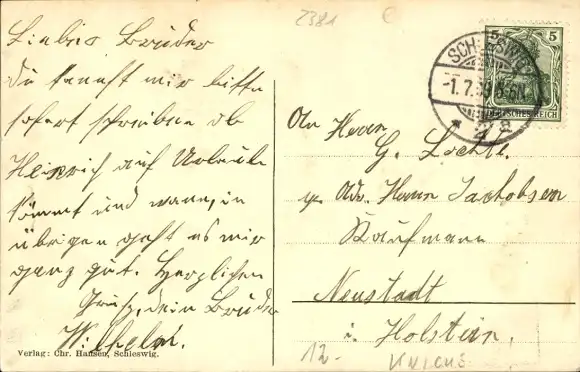 2381
Lieber Bruder
Du kannst mir bitte
sofort schreiben ob
Heinrich auf Urlaub
kommt und wann, im
übrigen geht es mir
ganz gut. Herzlichen
Gruß, dein Bruder
Wilhelm.
Verlag: Chr. Hansen, Schleswig.
5 5
DEUTSCHES REICH
SCHLESWIG
-1.7.09.8-9N.
* 2 a
An Herrn
G. Lochte.
Adr. Herrn Jackobsen
Kaufmann
Neustadt
i. Holstein.
12.-